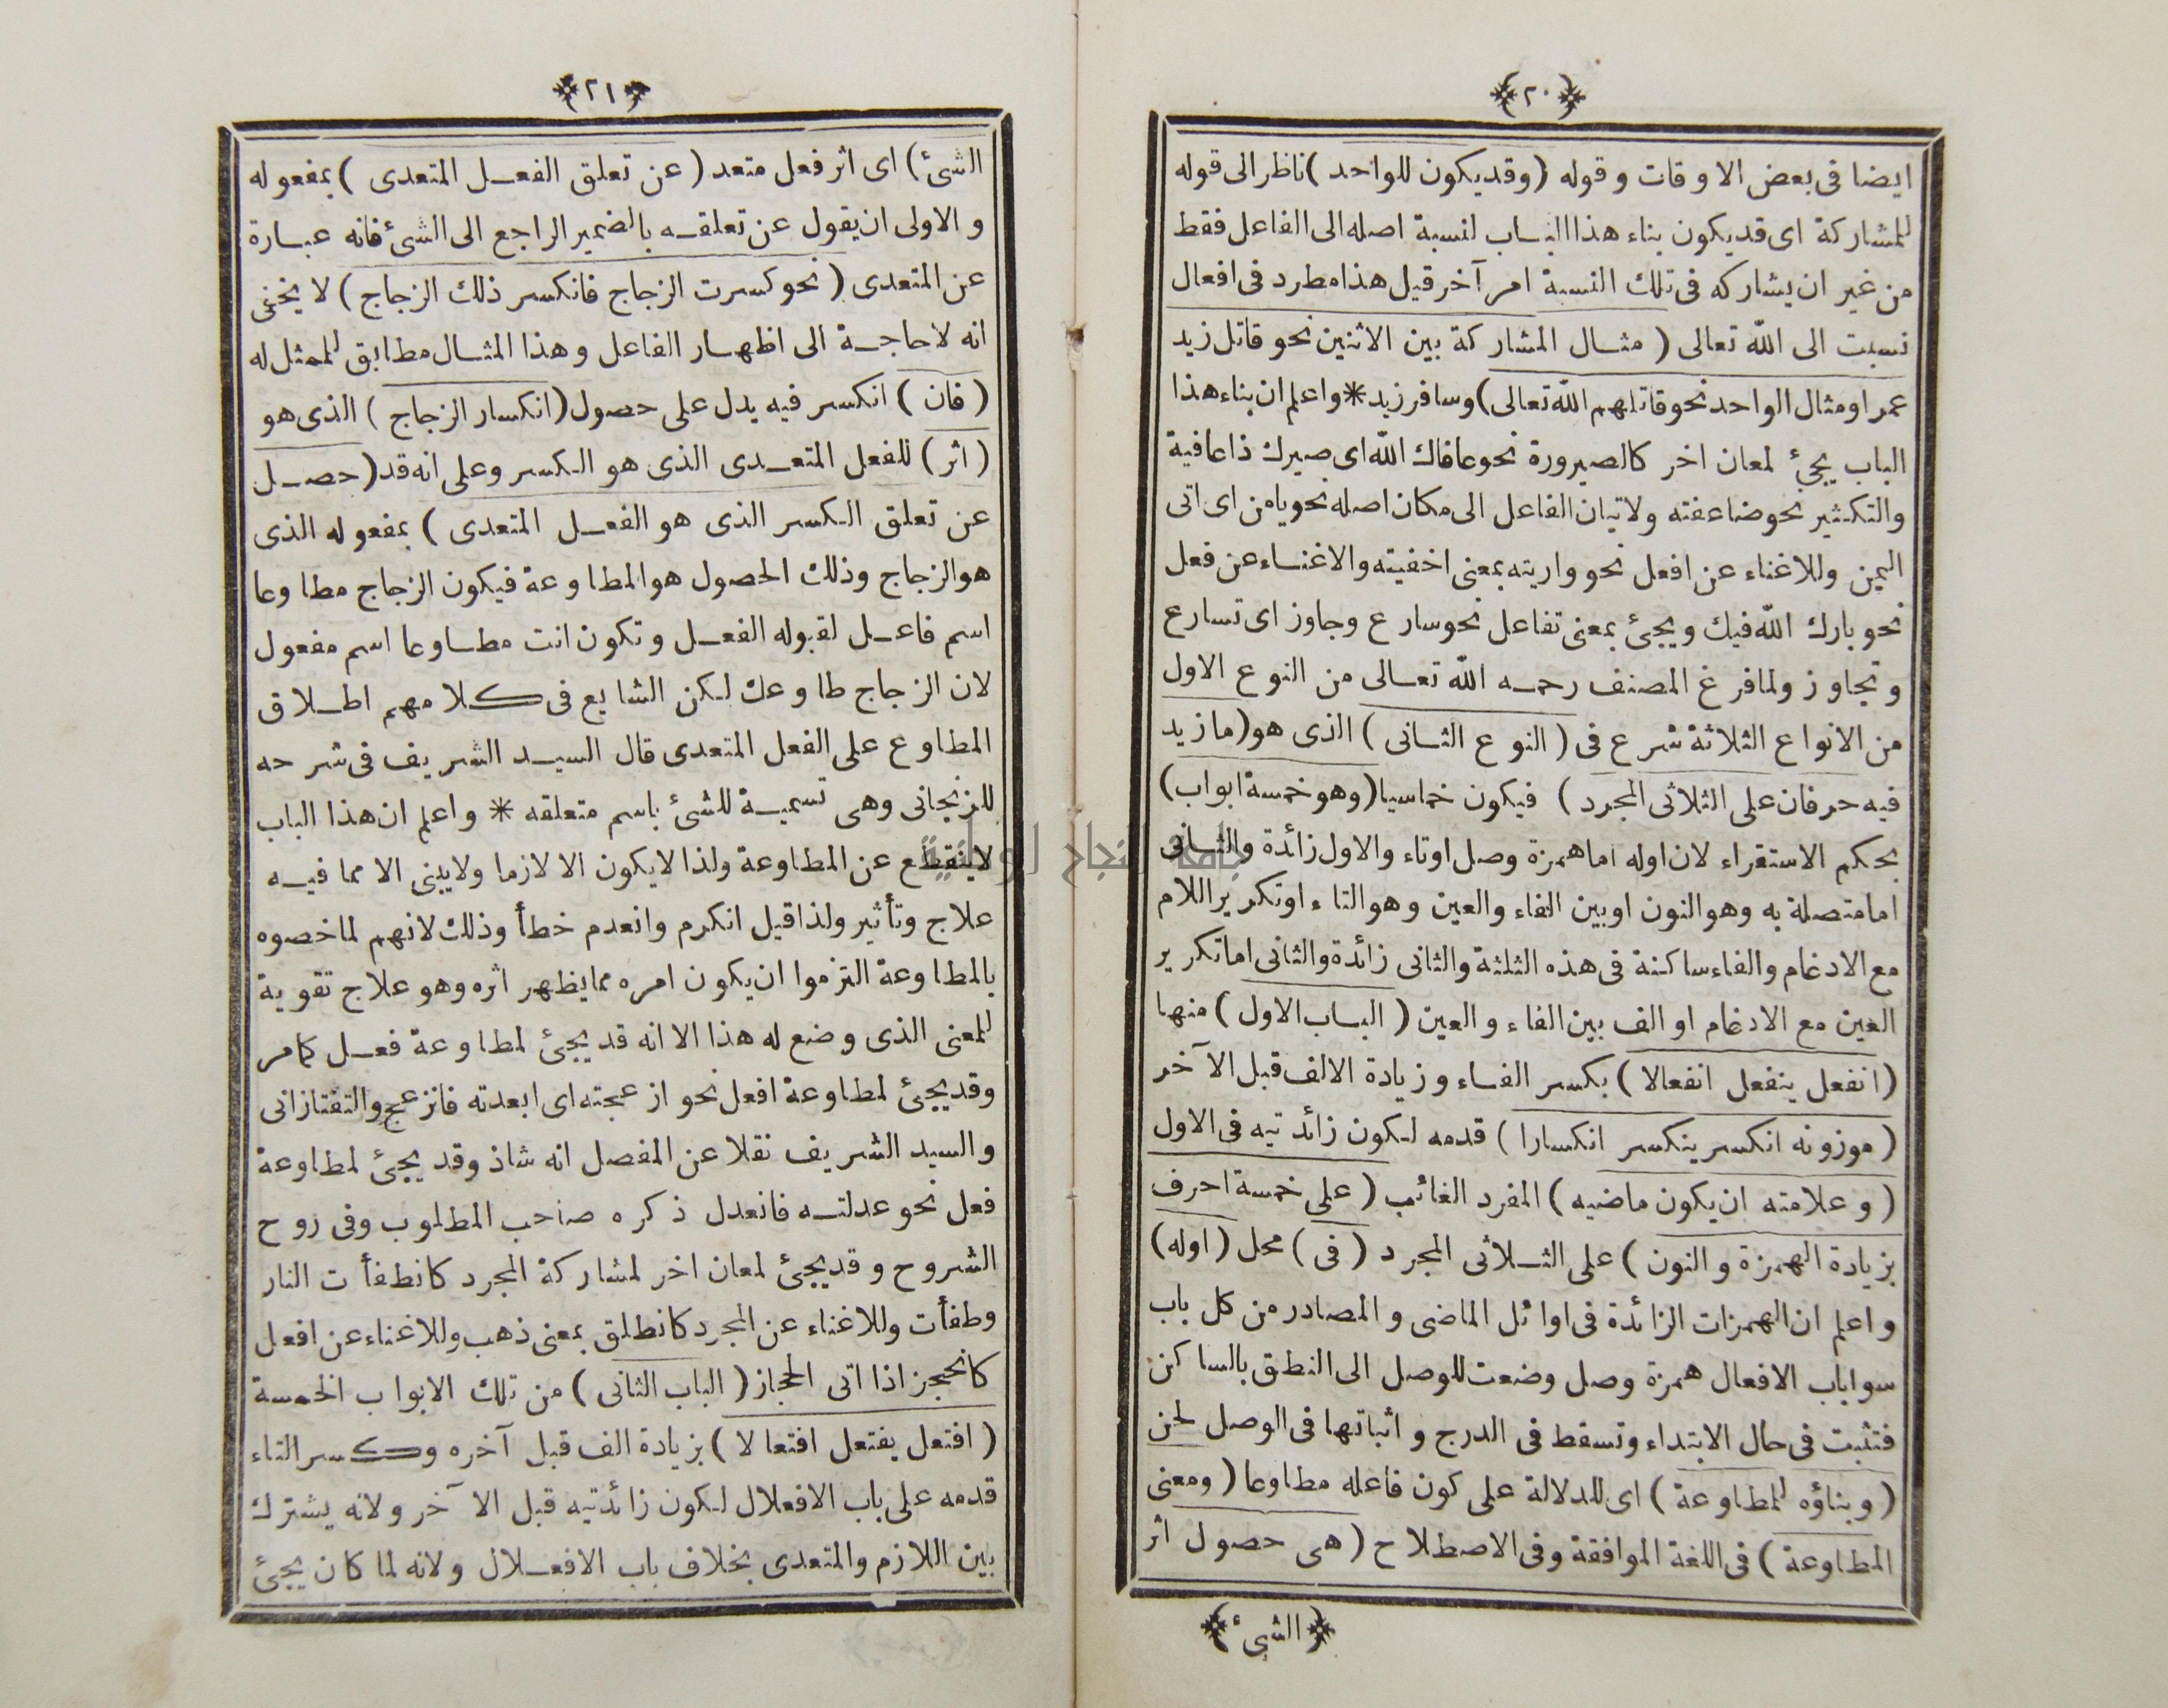 ﴿٢٠﴾
ايضا فى بعض الاوقات وقوله (وقديكون للواحد) ناظر الى قوله
للمشاركة اى قديكون بناء هذا الباب لنسبة اصله الى الفاعل فقط
من غير ان يشاركه فى تلك النسبة امر آخر قيل هذا مطرد فى افعال
نسبت الى الله تعالى (مثال المشاركة بين الاثنين نحو قاتل زيد
عمرا ومثال الواحد نحو قاتلهم الله تعالى) وسافر زيد * واعلم ان بناء هذا
الباب يجئ لمعان اخر كالصيرورة نحو عافاك الله اى صيرك ذا عافية
والتكثير نحو ضاعفته ولاتيان الفاعل الى مكان اصله نحو يامن اى اتى
اليمن وللاغناء عن افعل نحو واريته بمعنى اخفيته والاغناء عن فعل
نحو بارك الله فيك ويجئ بمعنى تفاعل نحو سارع وجاوز اى تسارع
وتجاوز ولما فرغ المصنف رحمه الله تعالى من النوع الاول
من الانواع الثلاثة شرع فى (النوع الثانى) الذى هو (ما زيد
فيه حرفان على الثلاثى المجرد) فيكون خماسيا (وهو خمسة ابواب)
بحكم الاستقراء لان اوله اما همزة وصل اوتاء والاول زائدة والثانى
اما متصلة به وهو النون او بين الفاء والعين وهو التاء اوتكرير اللام
مع الادغام والفاء ساكنة فى هذه الثلثة والثانى زائدة والثانى اما تكرير
العين مع الادغام او الف بين الفاء والعين (الباب الاول) منها
(انفعل ينفعل انفعالا) بكسر الفاء وزيادة الالف قبل الآخر
(موزونه انكسر ينكسر انكسارا) قدمه لكون زائدتيه فى الاول
(وعلامته ان يكون ماضيه) المفرد الغائب (على خمسة احرف
بزيادة الهمزة والنون) على الثلاثى المجرد (فى) محل (اوله)
واعلم ان الهمزات الزائدة فى اوائل الماضى والمصادر من كل باب
سوا باب الافعال همزة وصل وضعت للوصل الى النطق بالساكن
فتثبت فى حال الابتداء وتسقط فى الدرج واثباتها فى الوصل لحن
(وبناؤه للمطاوعة) اى للدلالة على كون فاعله مطاوعا (ومعنى
المطاوعة) فى اللغة الموافقة وفى الاصطلاح (هى حصول اثر
﴿الشئ﴾
﴿٢١﴾
الشئ) اى اثر فعل متعد (عن تعلق الفعل المتعدى) بمفعوله
والاولى ان يقول عن تعلقه بالضمير الراجع الى الشئ فانه عبارة
عن المتعدى (نحو كسرت الزجاج فانكسر ذلك الزجاج) لا يخفى
انه لا حاجة الى اظهار الفاعل وهذا المثال مطابق للممثل له
(فان) انكسر فيه يدل على حصول (انكسار الزجاج) الذى هو
(اثر) للفعل المتعدى الذى هو الكسر وعلى انه قد (حصل
عن تعلق الكسر الذى هو الفعل المتعدى) بمفعوله الذى
هو الزجاج وذلك الحصول هو المطاوعة فيكون الزجاج مطاوعا
اسم فاعل لقبوله الفعل وتكون انت مطاوعا اسم مفعول
لان الزجاج طاوعك لكن الشايع فى كلامهم اطلاق
المطاوع على الفعل المتعدى قال السيد الشريف فى شرحه
للزنجانى وهى تسمية للشئ باسم متعلقه * واعلم ان هذا الباب
لا ينقطع عن المطاوعة ولذا لا يكون الا لازما ولا يبنى الا مما فيه
علاج وتأثير ولذا قيل انكرم وانعدم خطأ وذلك لانهم لما خصوه
بالمطاوعة التزموا ان يكون امره مما يظهر اثره وهو علاج تقوية
للمعنى الذى وضع له هذا الا انه قد يجئ لمطاوعة فعل كما مر
وقد يجئ لمطاوعة افعل نحو ازعجته اى ابعدته فانزعج والتفتازانى
والسيد الشريف نقلا عن المفصل انه شاذ وقد يجئ لمطاوعة
فعل نحو عدلته فانعدل ذكره صاحب المطلوب وفى روح
الشروح وقد يجئ لمعان اخر لمشاركة المجرد كانطفأت النار
وطفأت وللاغناء عن المجرد كانطلق بمعنى ذهب وللاغناء عن افعل
كانحجز اذا اتى الحجاز (الباب الثانى) من تلك الابواب الخمسة
(افتعل يفتعل افتعالا) بزيادة الف قبل آخره وكسر التاء
قدمه على باب الافعلال لكون زائدتيه قبل الآخر ولانه يشترك
بين اللازم والمتعدى بخلاف باب الافعلال ولانه لما كان يجئ